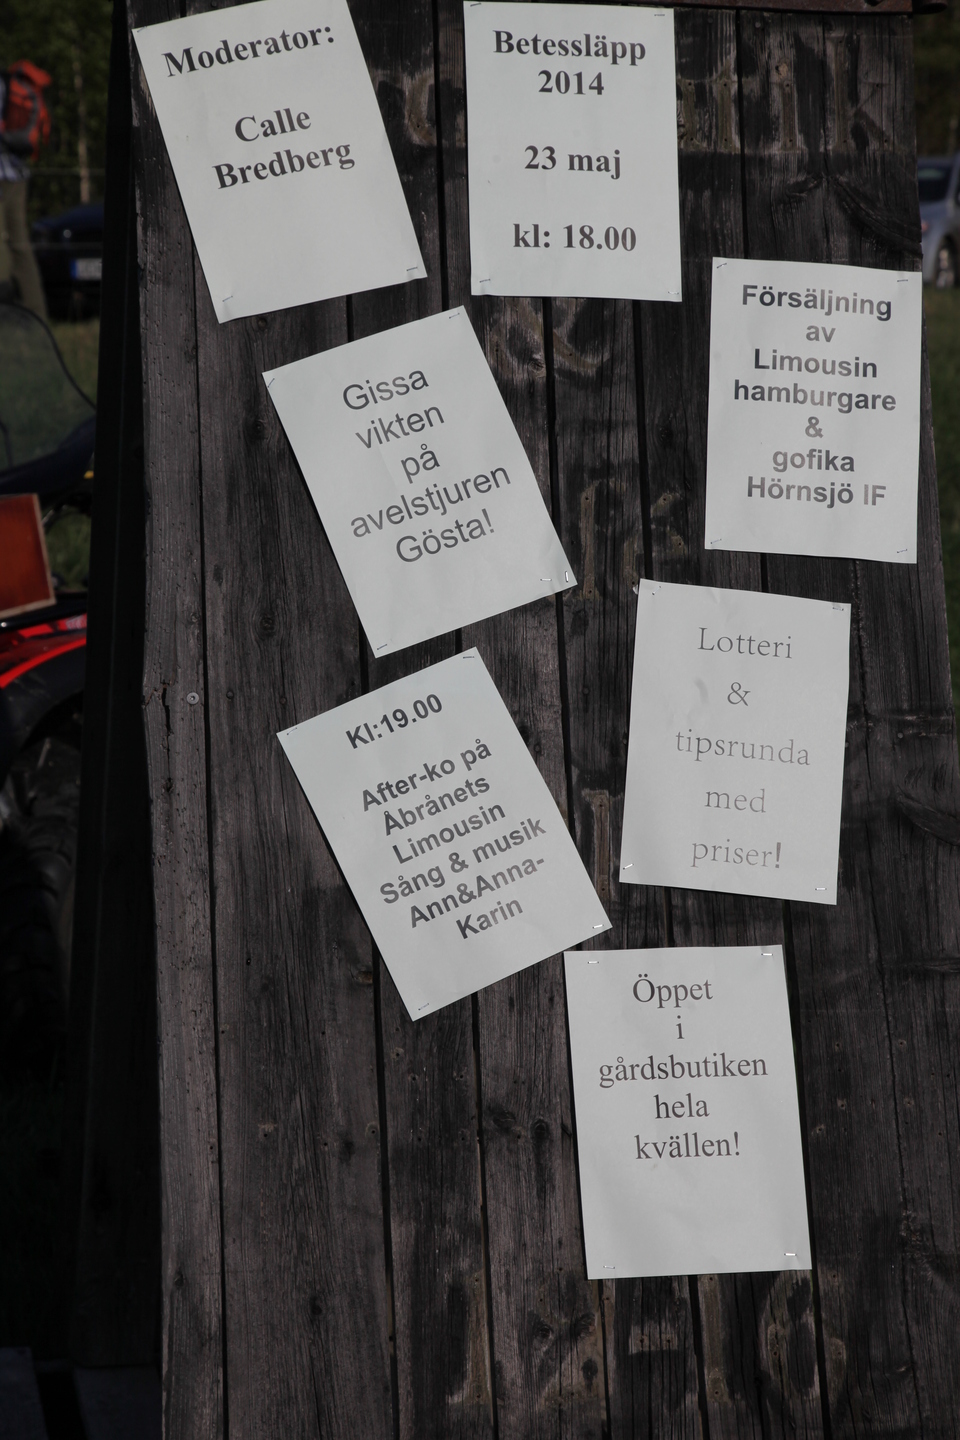 Moderator:
Calle
Bredberg
Betessläpp
2014
23 maj
kl: 18.00
Försäljning
av
Limousin
hamburgare
&
gofika
Hörnsjö IF
Gissa
vikten
på
avelstjuren
Gösta!
Lotteri
&
tipsrunda
med
priser!
Kl:19.00
After-ko på
Åbrånets
Limousin
Sång & musik
Ann&Anna-
Karin
Öppet
i
gårdsbutiken
hela
kvällen!